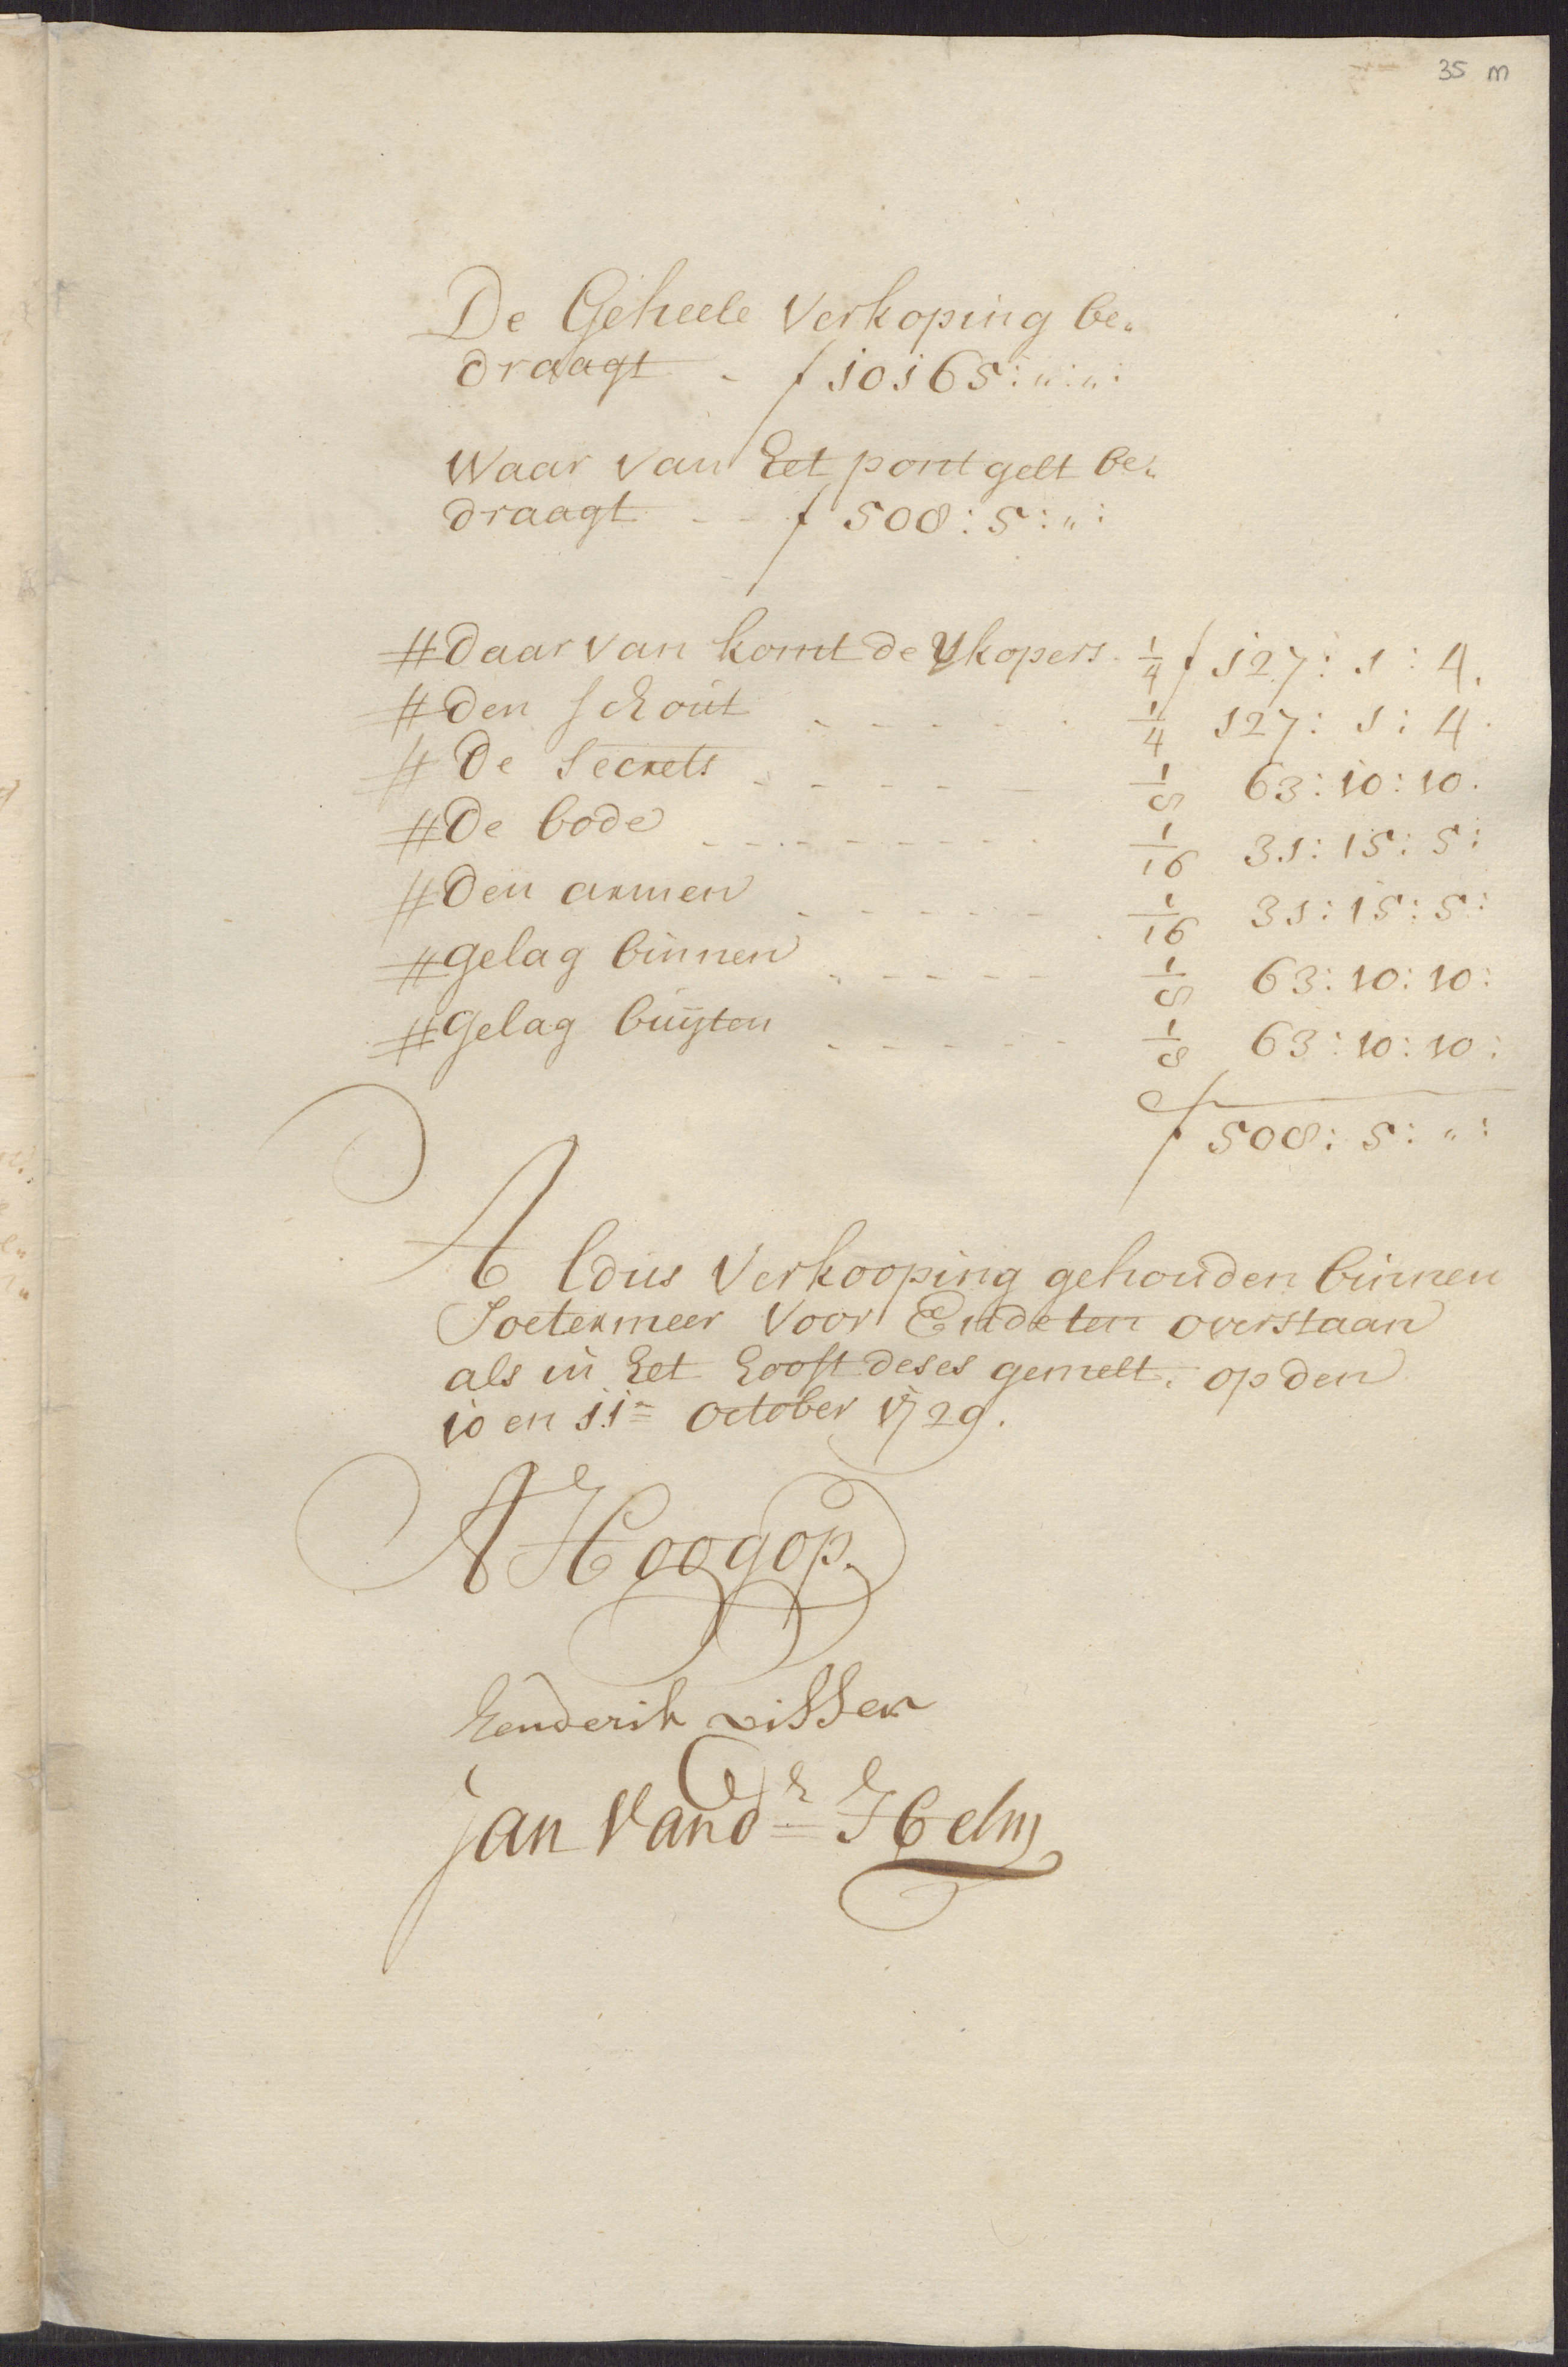 35 m
De Geheele Verkoping be„
draagt - ƒ 10165:„:„:
Waar van het pont gelt be„
draagt - - ƒ 508:5:„:
# daar van komt de Vkopers. 1/4 ƒ 127:1:4.
# den schout - - - - - 1/4 127:1:4.
# De Secrets - - - - - 1/8 63:10:10.
# De bode - - - - - - - - 1/16 31:15:5:
# Den armen - - - - - - 1/16 31:15:5:
# gelag binnen - - - - - 1/8 63:10:10:
# gelag buijten - - - - - 1/8 63:10:10:
ƒ 508:5:„:
Aldus Verkooping gehouden binnen
Soetermeer Voor Ende ten overstaan
als in het hooft deses gemelt. op den
10 en 11= october 1729.
A Hoogop.
henderik visser
Jan Vand= Helm